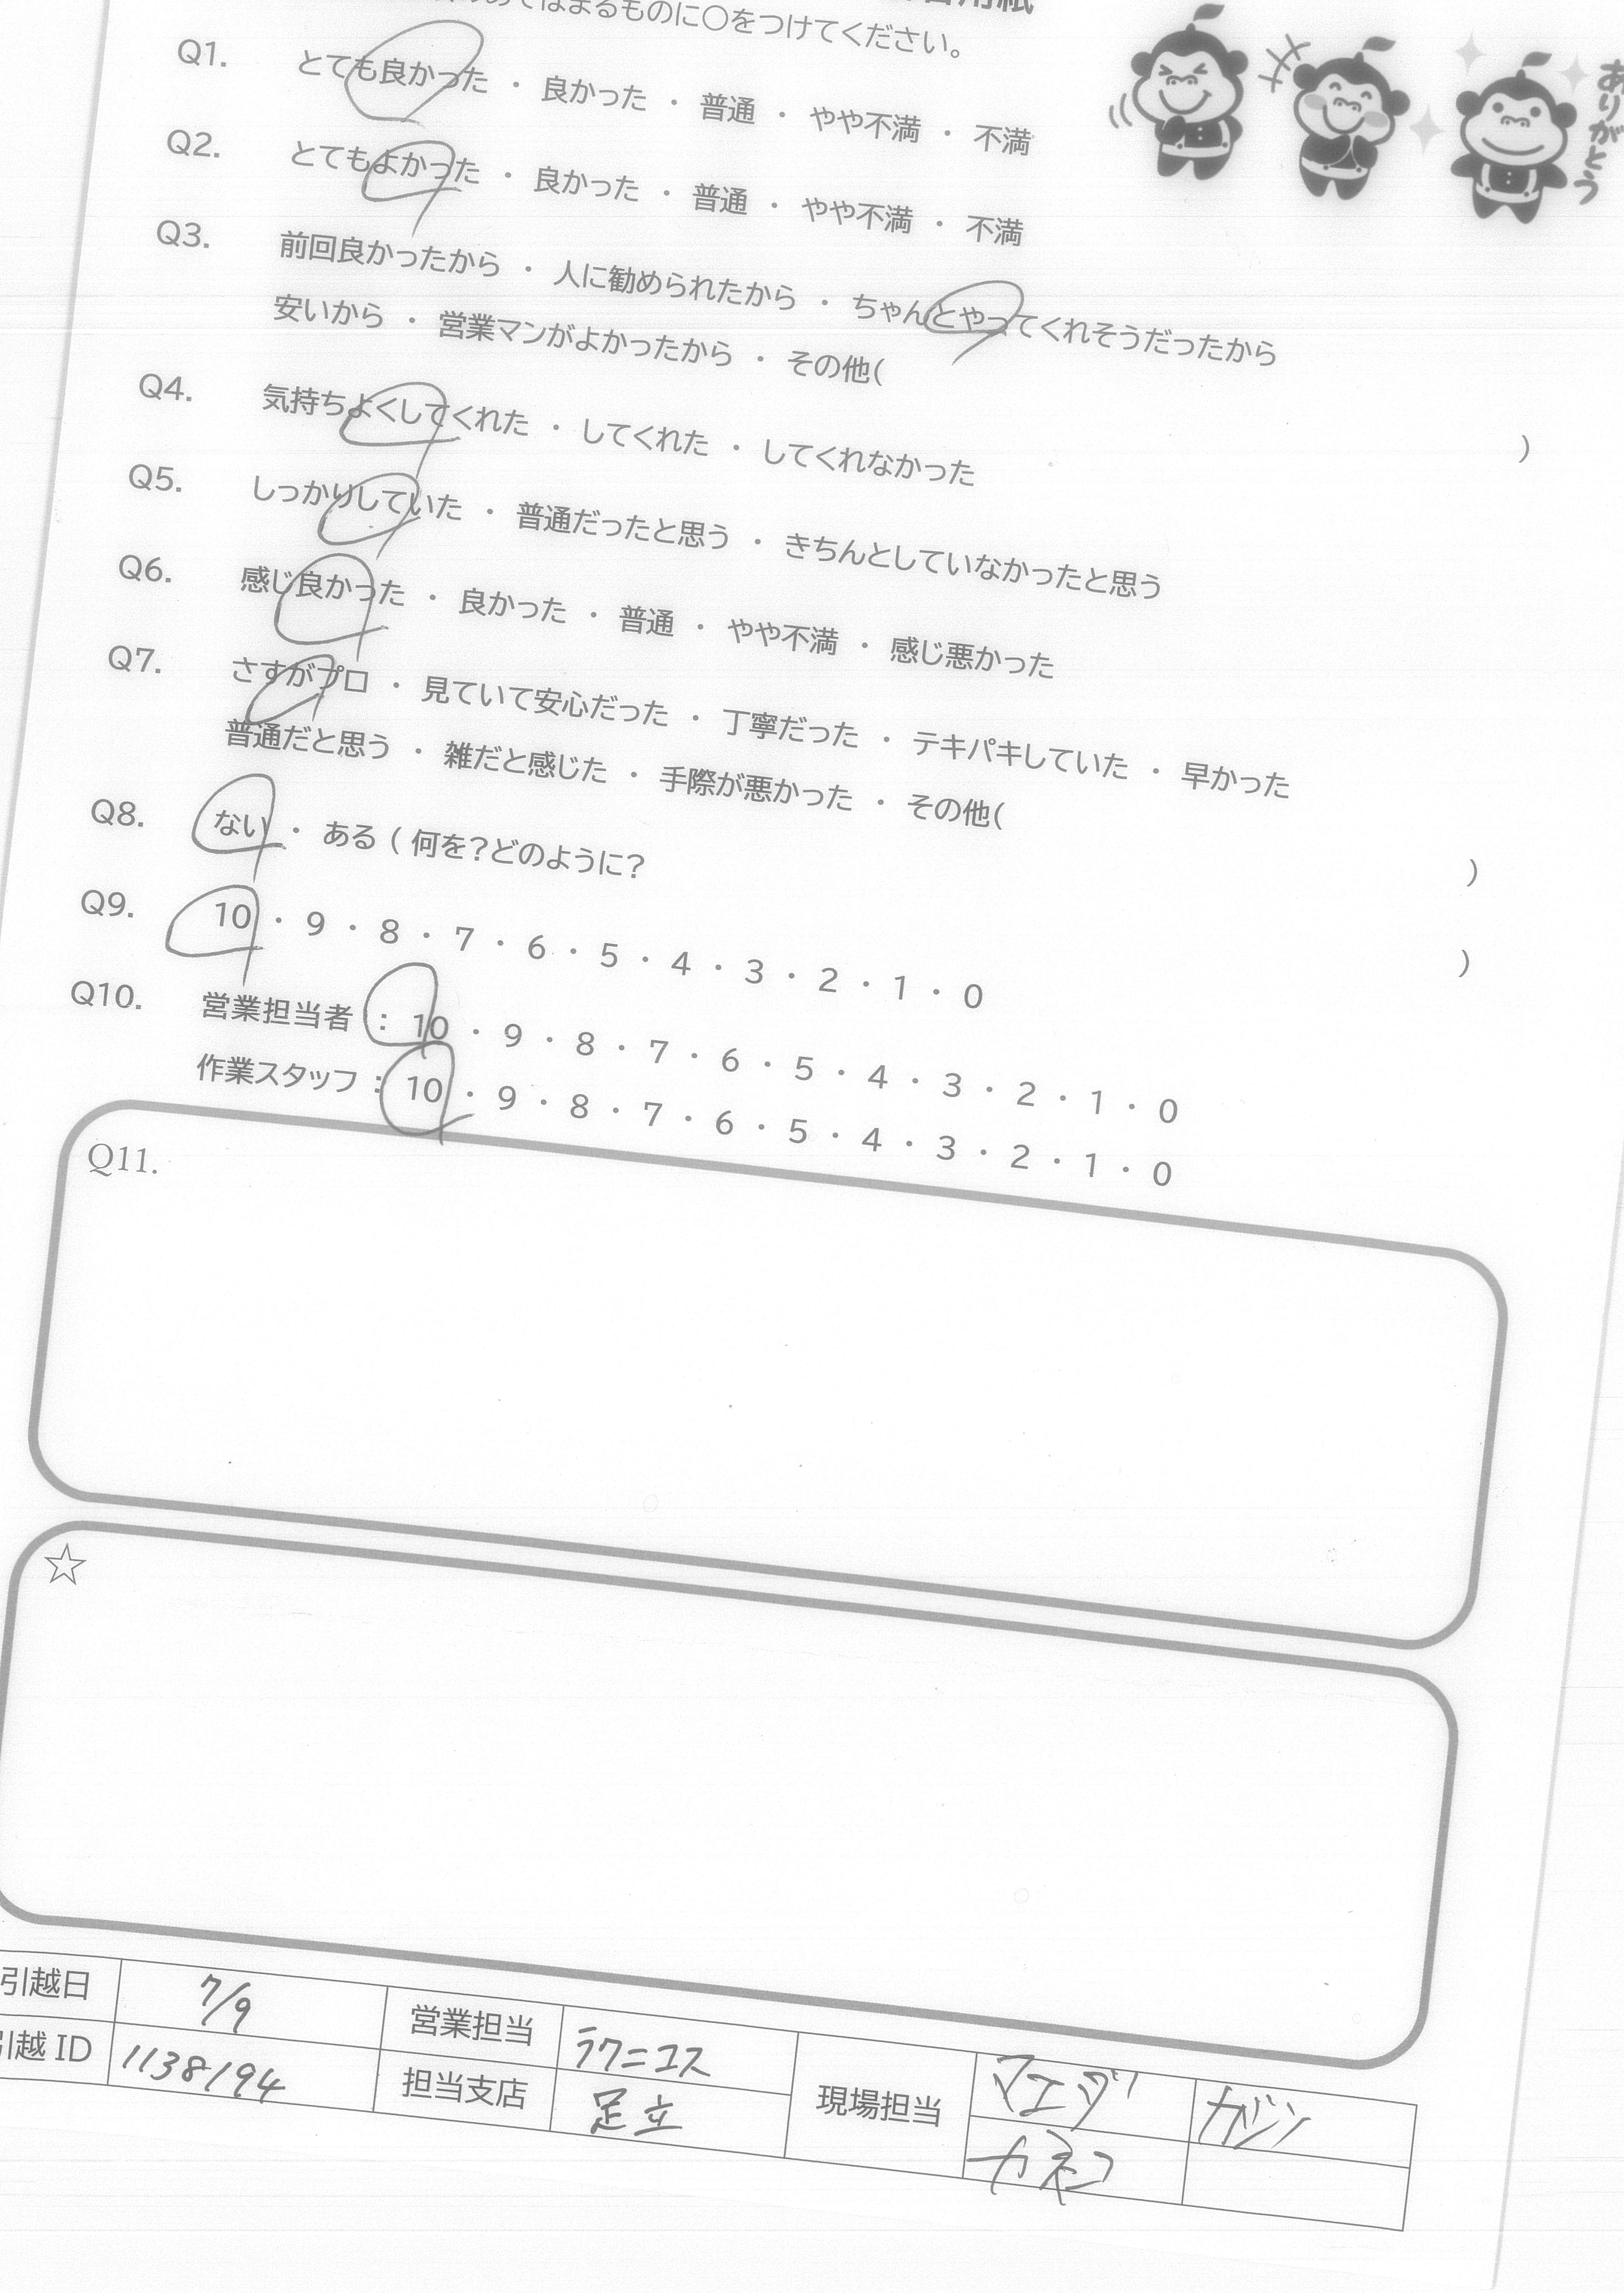 はまるものに〇をつけてください。
ありがとう
Q1. とても良かった ・ 良かった ・ 普通 ・ やや不満 ・ 不満
Q2. とてもよかった ・ 良かった ・ 普通 ・ やや不満 ・ 不満
Q3. 前回良かったから ・ 人に勧められたから ・ ちゃんとやってくれそうだったから
安いから ・ 営業マンがよかったから ・ その他( )
Q4. 気持ちよくしてくれた ・ してくれた ・ してくれなかった
Q5. しっかりしていた ・ 普通だったと思う ・ きちんとしていなかったと思う
Q6. 感じ良かった ・ 良かった ・ 普通 ・ やや不満 ・ 感じ悪かった
Q7. さすがプロ ・ 見ていて安心だった ・ 丁寧だった ・ テキパキしていた ・ 早かった
普通だと思う ・ 雑だと感じた ・ 手際が悪かった ・ その他( )
Q8. ない ・ ある ( 何を?どのように? )
Q9. 10 ・ 9 ・ 8 ・ 7 ・ 6 ・ 5 ・ 4 ・ 3 ・ 2 ・ 1 ・ 0
Q10. 営業担当者 : 10 ・ 9 ・ 8 ・ 7 ・ 6 ・ 5 ・ 4 ・ 3 ・ 2 ・ 1 ・ 0
作業スタッフ : 10 ・ 9 ・ 8 ・ 7 ・ 6 ・ 5 ・ 4 ・ 3 ・ 2 ・ 1 ・ 0
Q11.
☆
引越日 7/9 営業担当 ラクニコス 現場担当 マエダ
引越 ID 1138194 担当支店 足立 カネコ